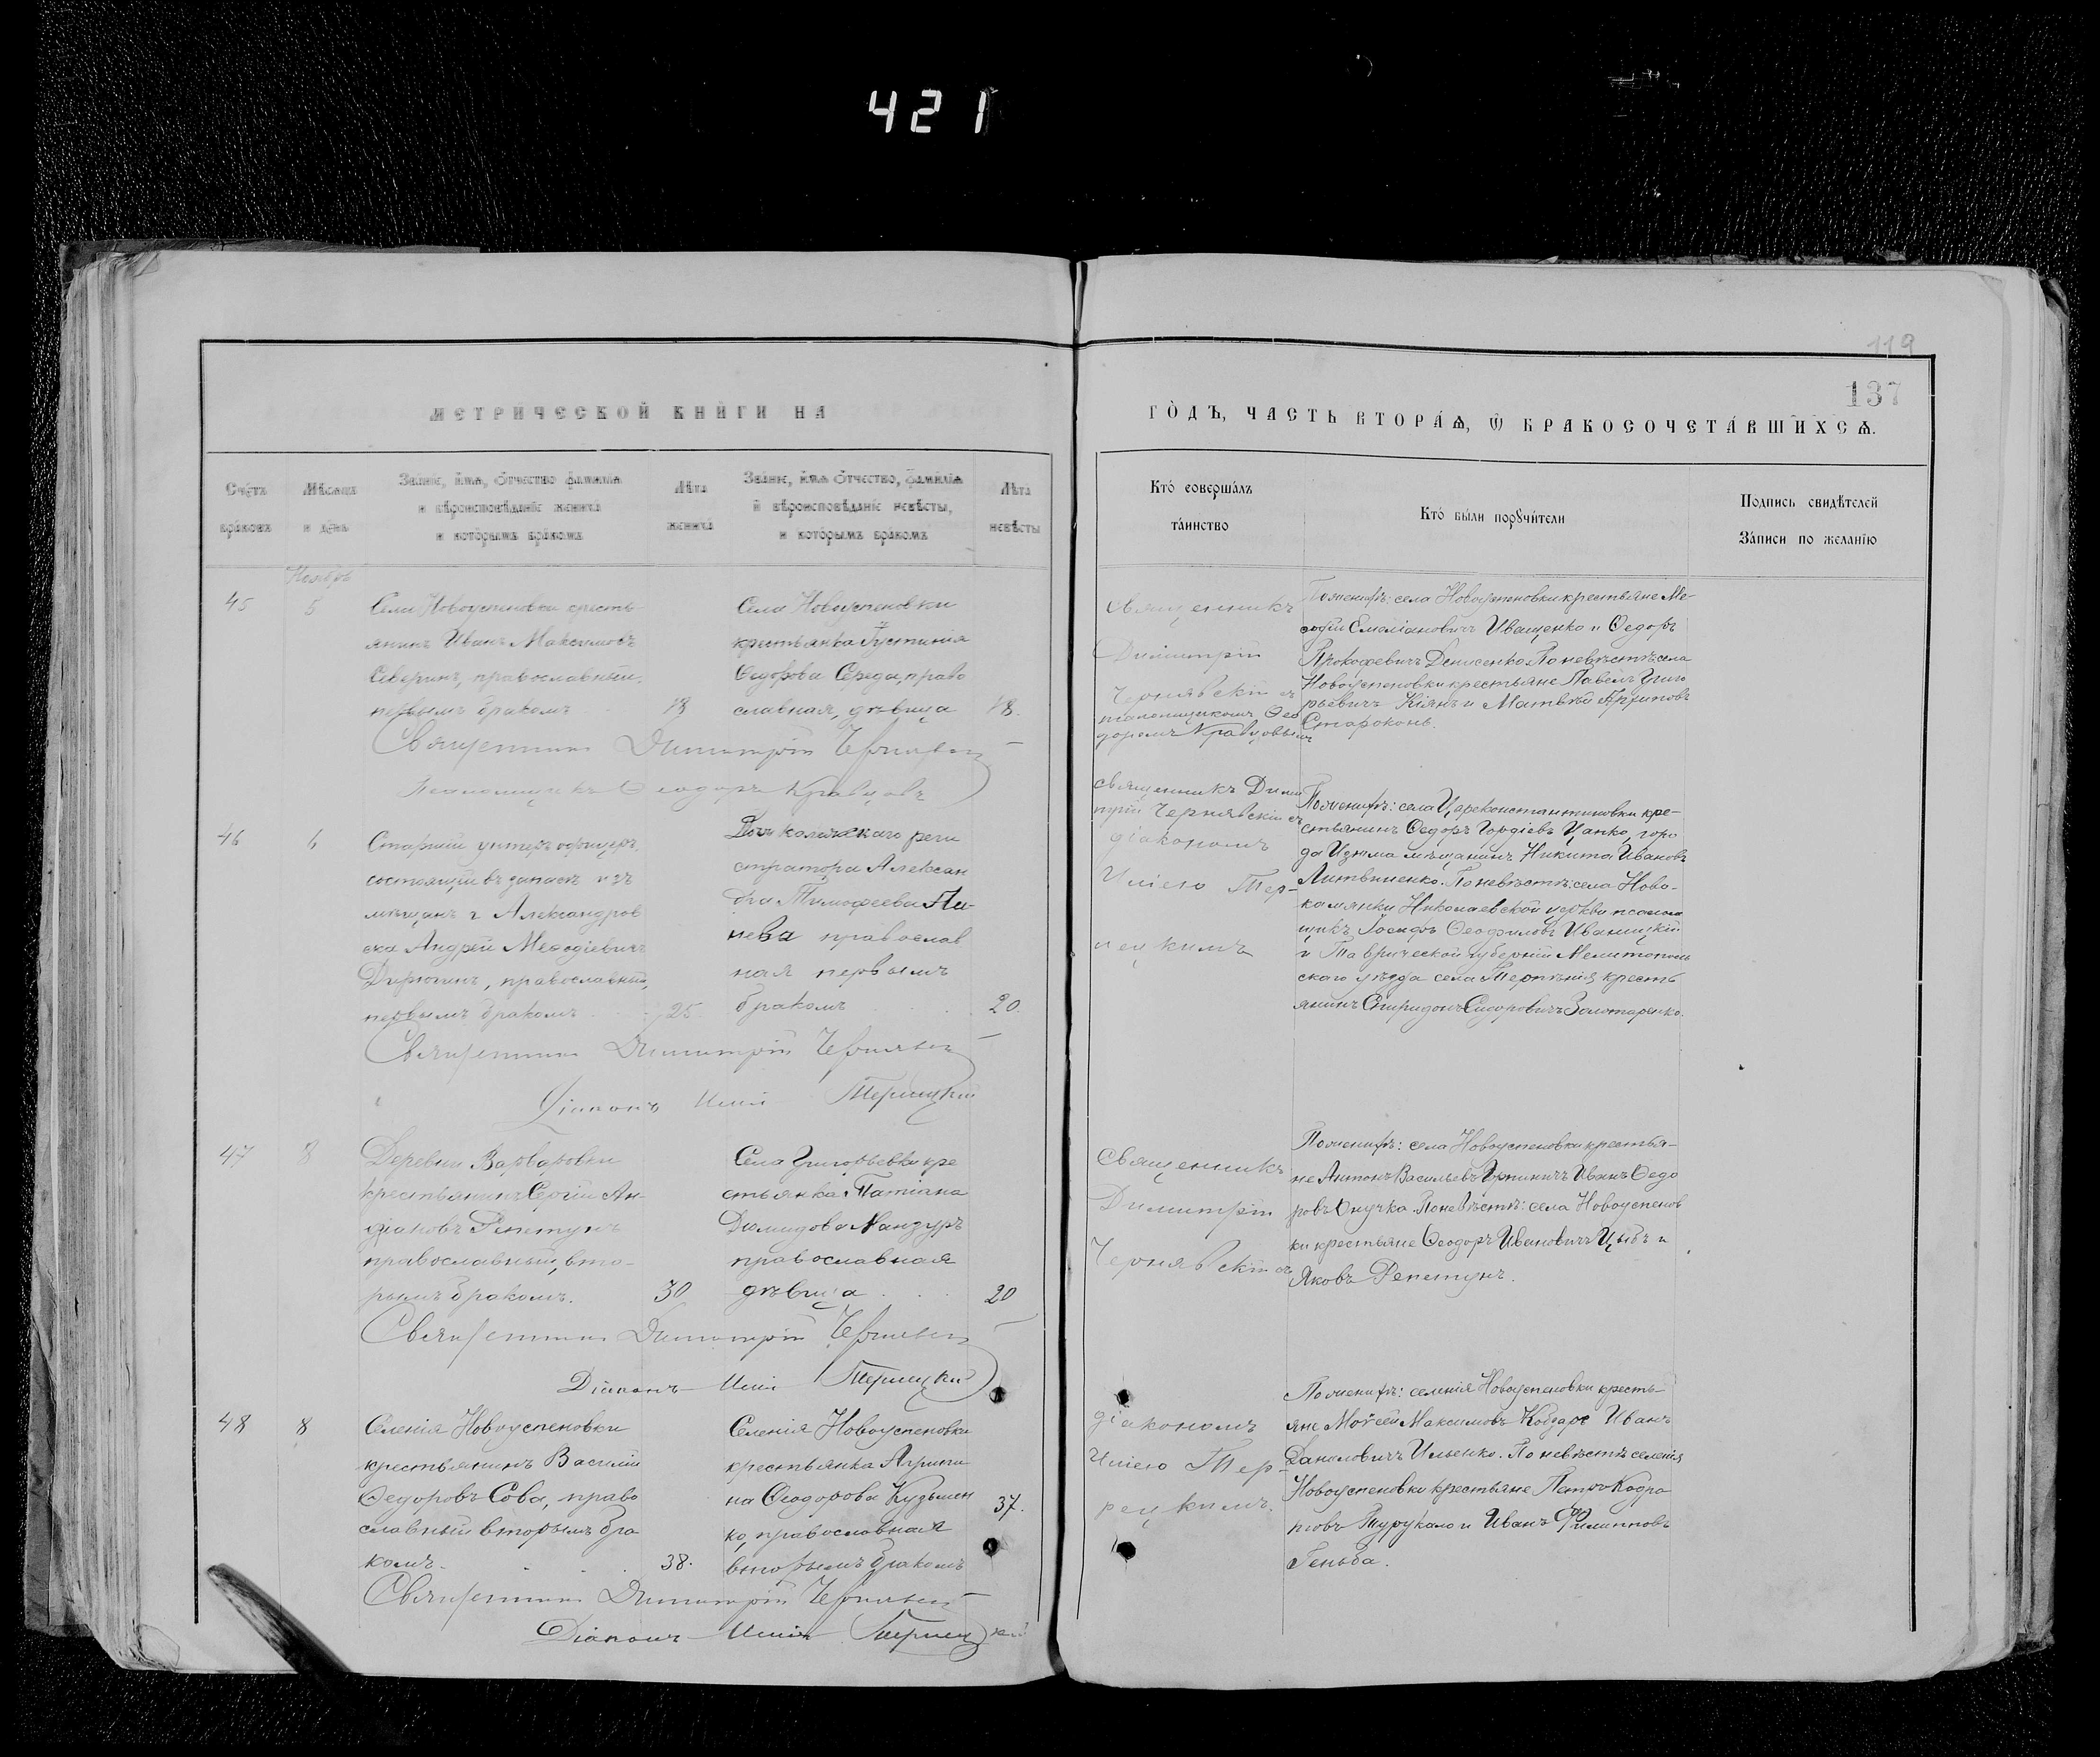 421
119
137
МЕТРИЧЕСКОЙ КНИГИ НА
ГОДЪ, ЧАСТЬ ВТОРАЯ, Ѡ БРАКОСОЧЕТАВШИХСЯ.
Счетъ браковъ
Мѣсяцъ и день
Званіе, имя, отчество фамилія
и вѣроисповѣданіе жениха
и которымъ бракомъ
Лѣта жениха
Званіе, имя отчество, фамилія
и вѣроисповѣданіе невѣсты,
и которымъ бракомъ
Лѣта невѣсты
Кто совершалъ
таинство
Кто были поручители
Подпись свидѣтелей
Записи по желанію
Ноябрь
45
5
Села Новоуспеновки кресть
янинъ Иванъ Максимовъ
Северинъ, православный,
первымъ бракомъ
18
Села Новоуспеновки
крестьянка Іустинія
Ѳедорова Середа, право
славная, дѣвица
18.
Священникъ
Димитрій
Чернявскій съ
псаломщикомъ Ѳео
доромъ Кравцовымъ
По женихѣ: села Новоуспеновки крестьяне Ме-
ѳодій Емеліановичъ Иващенко и Ѳедоръ
Прокофевичъ Денисенко. По невѣстѣ: села
Новоуспеновки крестьяне Павелъ Григо
рьевичъ Кіянъ и Матвѣй
Староконь.
Священникъ Димитрій Чернявскій
Псаломщикъ Ѳеодоръ Кравцовъ
46
6
Старшій унтеръ офицеръ,
состоящій въ запасѣ изъ
мѣщанъ г. Александров
ска Андрей Меѳодіевичъ
православный,
первымъ бракомъ
25
Дочь колежскаго реги
стратора Алексан
дра Тимофеева
православ
ная первымъ
бракомъ
20.
Священникъ Дими
трій Чернявскій съ
діакономъ
Иліею Тер-
лецкимъ
По женихѣ: села Цареконстантиновки кре-
стьянинъ Ѳедоръ Гордіевъ Цапко, горо
да Изюма мѣщанинъ Никита Ивановъ
Литвиненко. По невѣстѣ: села Ново-
камянки Николаевской церкви псалом
щикъ Іосифъ Ѳеофиловъ Иваницкій
и Таврической губерніи Мелитополь
скаго уѣзда села Терпѣнія кресть
янинъ Спиридонъ Сидоровичъ Золотаренко.
Священникъ Димитрій Чернявскій
Діаконъ Илія Терлецкій
47
8
Деревни Варваровки
крестьянинъ Сергій Ан-
Репетунъ
православный, вто-
рымъ бракомъ.
30
Села Григорьевки кре
стьянка Татіана
Демидова Мандуръ
православная
дѣвица
20
Священникъ
Димитрій
Чернявскій съ
По женихѣ: села Новоуспеновки крестья-
не Антонъ Васильевъ Иванъ Ѳедо
ровъ Онучка. По невѣстѣ: села Новоуспенов
ки крестьяне Ѳеодоръ Ивановичъ Цыбъ и
Яковъ Репетунъ.
Священникъ Димитрій Чернявскій
Діаконъ Илія Терлецкій
48
8
Селенія Новоуспеновки
крестьянинъ Василій
Ѳедоровъ Сова, право
славный вторымъ бра
комъ.
38.
Селенія Новоуспеновки
крестьянка Агрипи
на Ѳеодорова Кузьмен
ко, православная
вторымъ бракомъ
37.
діакономъ
Иліею Тер-
лецкимъ.
По женихѣ: селенія Новоуспеновки кресть-
яне Моѵсей Максимовъ Кобзарь Иванъ
Даниловичъ Ильенко. По невѣстѣ селенія
Новоуспеновки крестьяне Петръ Кодра
товъ Турукало и Иванъ Филипповъ
Геньба.
Священникъ Димитрій Чернявскій
Діаконъ Илія Терлецкій